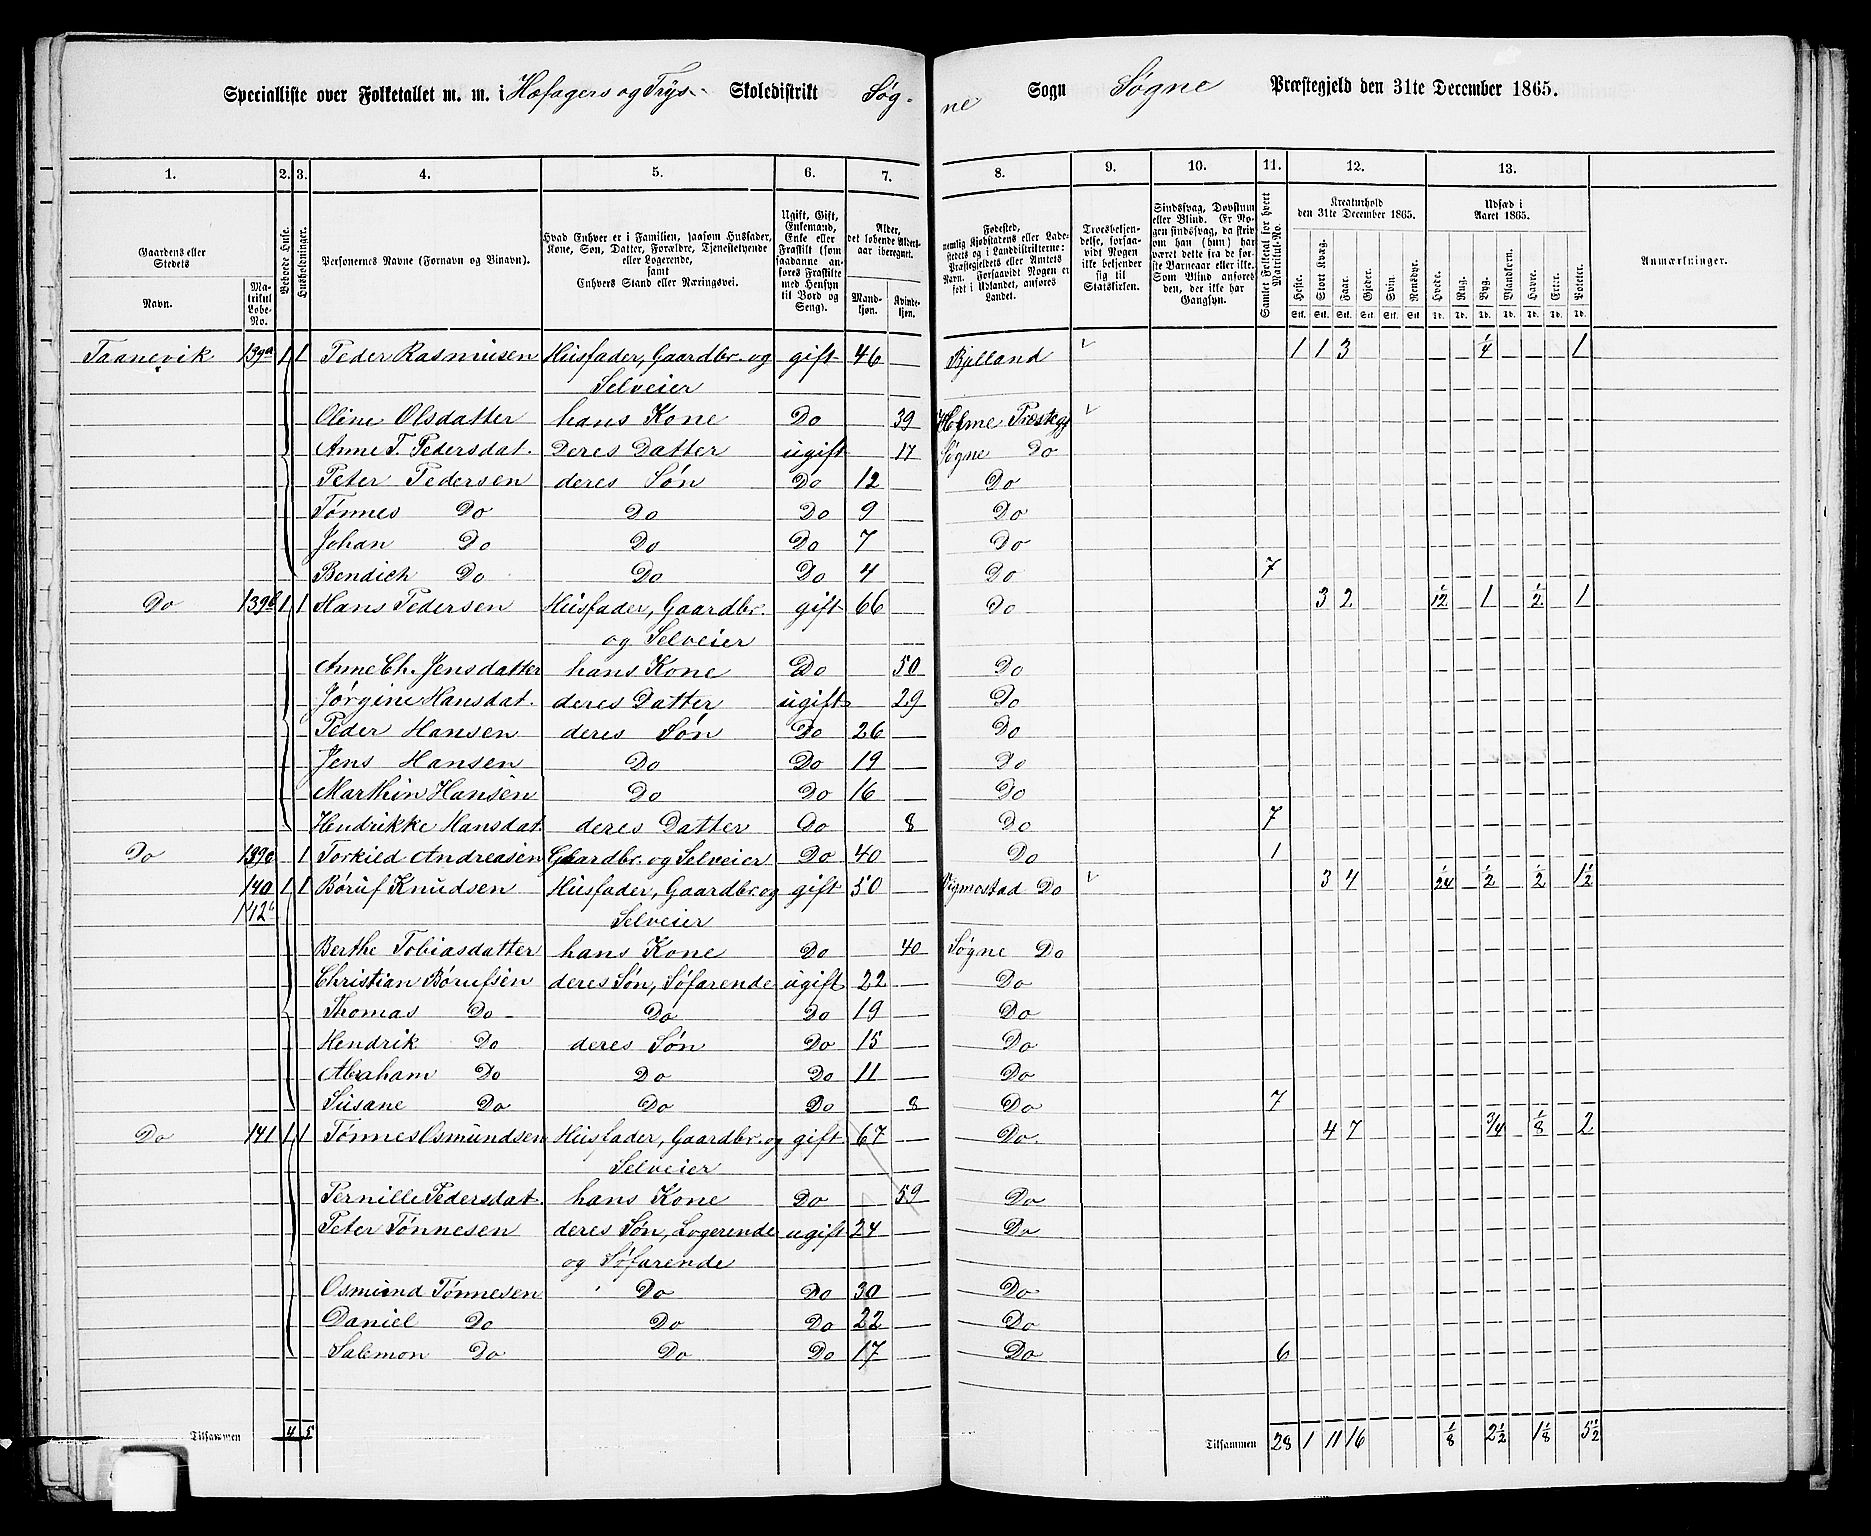 Specialliste over Folketallet m. m. i Høfagers og Trys- Skoledistrikt Søg-ne Sogn Søgne Præstegjeld den 31te December 1865.
1. 2. 3. 4. 5. 6. 7. 8. 9. 10. 11. 12. 13.
Gaardens eller Stedets Navn. Matrikul Løbe-No. Beboede Huse. Husholdninger. Personernes Navne (Fornavn og Binavn). Hvad Enhver er i Familien, saasom Husfader, Kone, Søn, Datter, Forældre, Tjenestetyende eller Logerende, samt Enhvers Stand eller Næringsvei. Ugift, Gift, Enkemand, Enke eller Fraskilt (som saadanne anføres Fraskilte med Hensyn til Bord og Seng). Alder, det løbende Alders-aar iberegnet. Mandkjøn. Kvindekjøn. Fødested, nemlig Kjøbstadens eller Ladestedets og i Landdistrikterne: Præstegjeldets eller Amtets Navn. Forsaavidt Nogen er født i Udlandet, anføres Landet. Troesbekjendelse, forsaavidt Nogen ikke bekjender sig til Statskirken. Sindssvag, Døvstum eller Blind. Er Nogen sindssvag, da skrives om han (hun) har været dette fra de første Barneaar eller ikke. Som Blind anføres den, der ikke har Gangsyn. Samlet Folketal for hvert Matrikul-No. Kreaturhold den 31te December 1865. Heste. Stort Kvæg. Faar. Gjeder. Svin. Rensdyr. Udsæd i Aaret 1865. Hvede. Rug. Byg. Blandkorn. Havre. Erter. Poteter. Anmærkninger.
Taanevik 139a 1 1 Peder Rasmusen Husfader, Gaardbr. og gift 46 Bjelland 1 1 3 1/4 1
Selveier
Oline Olsdatter hans Kone Do 39 Holme Præstegj
Anne T. Pedersdat. Deres Datter ugift 17 Søgne Do
Peter Pedersen deres Søn Do 12 Do
Tønnes Do Do Do 9 Do
Johan Do Do Do 7 Do
Bendich Do Do Do 4 Do 7
Do 139b 1 1 Hans Pedersen Husfader, Gaardbr. gift 66 Do 3 2 1/12 1 1/2 1
og Selveier
Anne Ch. Jensdatter hans Kone Do 50 Do
Jørgine Hansdat. deres Datter ugift 29 Do
Peder Hansen deres Søn Do 26 Do
Jens Hansen Do Do 19 Do
Marthin Hansen Do Do 16 Do
Hendrikke Hansdat. deres Datter Do 8 Do 7
Do 139c 1 Torkild Andreasen Gaardbr. og Selveier Do 40 Do 1
140 1 1 Børuf Knudsen Husfader, Gaardbr. og gift 50 Vigmostad Do 3 4 1/24 1/2 1/2 1 1/2
142b Selveier
Berthe Tobiasdatter hans Kone Do 40 Søgne Do
Christian Børufsen deres Søn, Søfarende ugift 22 Do
Thomas Do Do Do 19 Do
Hendrik Do deres Søn Do 15 Do
Abraham Do Do Do 11 Do
Susane Do Do Do 8 Do 7
Do 141 1 1 Tønnes Osmundsen Husfader, Gaardbr. og gift 67 Do. 4 7 3/4 1/8 2
Selveier
Pernille Pedersdat. hans Kone Do 59 Do
Peter Tønnesen deres Søn, Logerende ugift 24 Do
og Søfarende
Osmund Tønnesen Do Do 30 Do
Daniel Do Do Do 22 Do
Salemon Do Do Do 17 Do 6
Tilsammen 4 5 Tilsammen 28 1 11 16 1/8 2 1/2 1 1/8 5 1/2